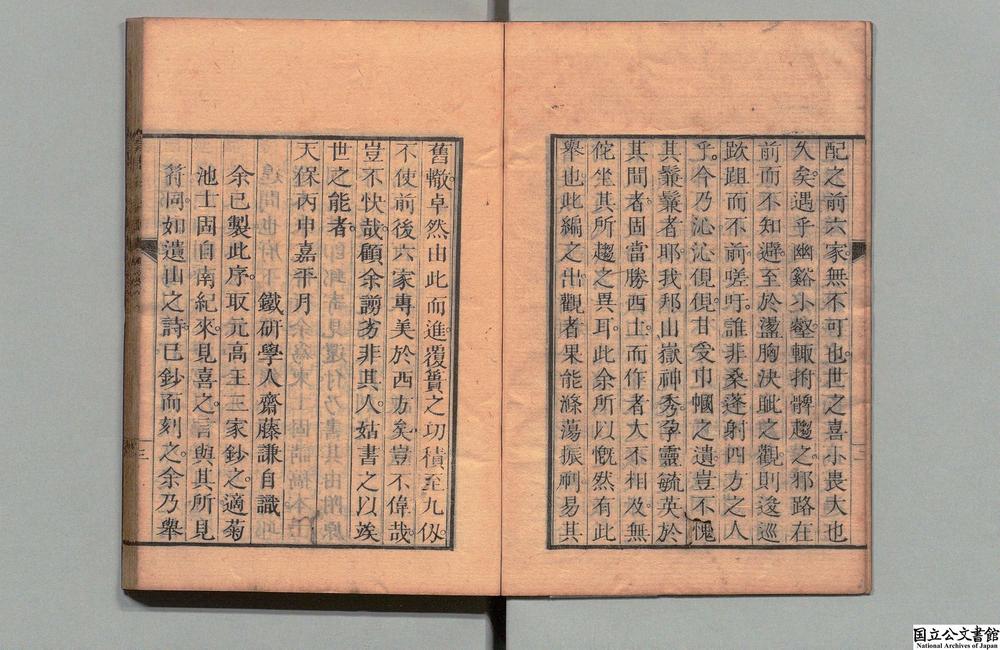 配之前六家無不可也世之喜小畏大也
久矣遇乎幽谿小壑輙拊髀趨之邪路在
前而不知避至於盪胸決眦之觀則逡巡
趑趄而不前嗟吁誰非桑蓬射四方之人
乎今乃沁沁俔俔甘受巾幗之遺豈不愧
其鬚鬢者耶我邦山嶽神秀孕靈毓英於
其間者固當勝西土而作者大不相及無
侘坐其所趨之異耳此余所以慨然有此
舉也此編之出觀者果能滌蕩振刷易其
舊轍卓然由此而進覆簣之功積至九仭
不使前後六家專美於西方矣豈不偉哉
豈不快哉顧余謭劣非其人姑書之以竢
世之能者
天保丙申嘉平月
鐵研學人齋藤謙自識
余已製此序取元高王三家鈔之適菊
池士固自南紀來見喜之言與其所見
符同如遺山之詩已鈔而刻之余乃舉
三
国立公文書館
National Archives of Japan